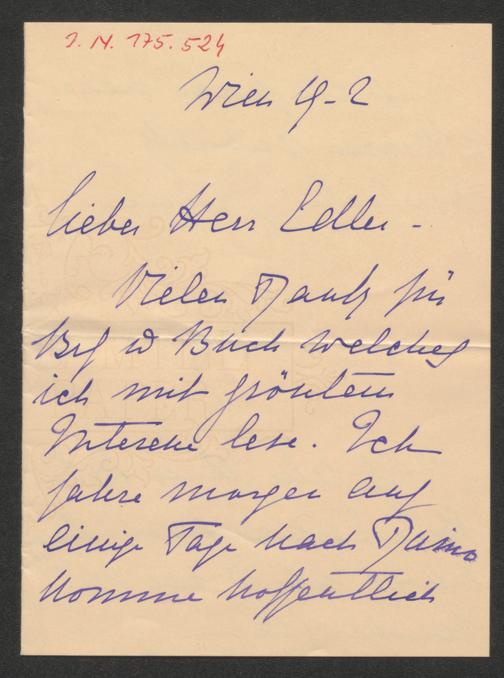 J. N. 175.524
Wien 19-2
Lieber Herr Edler -
Vielen Dank für
Brf u Buch welches
ich mit größtem
Interesse lese. Ich
fahre morgen auf
einige Tage nach Duino
komme hoffentlich